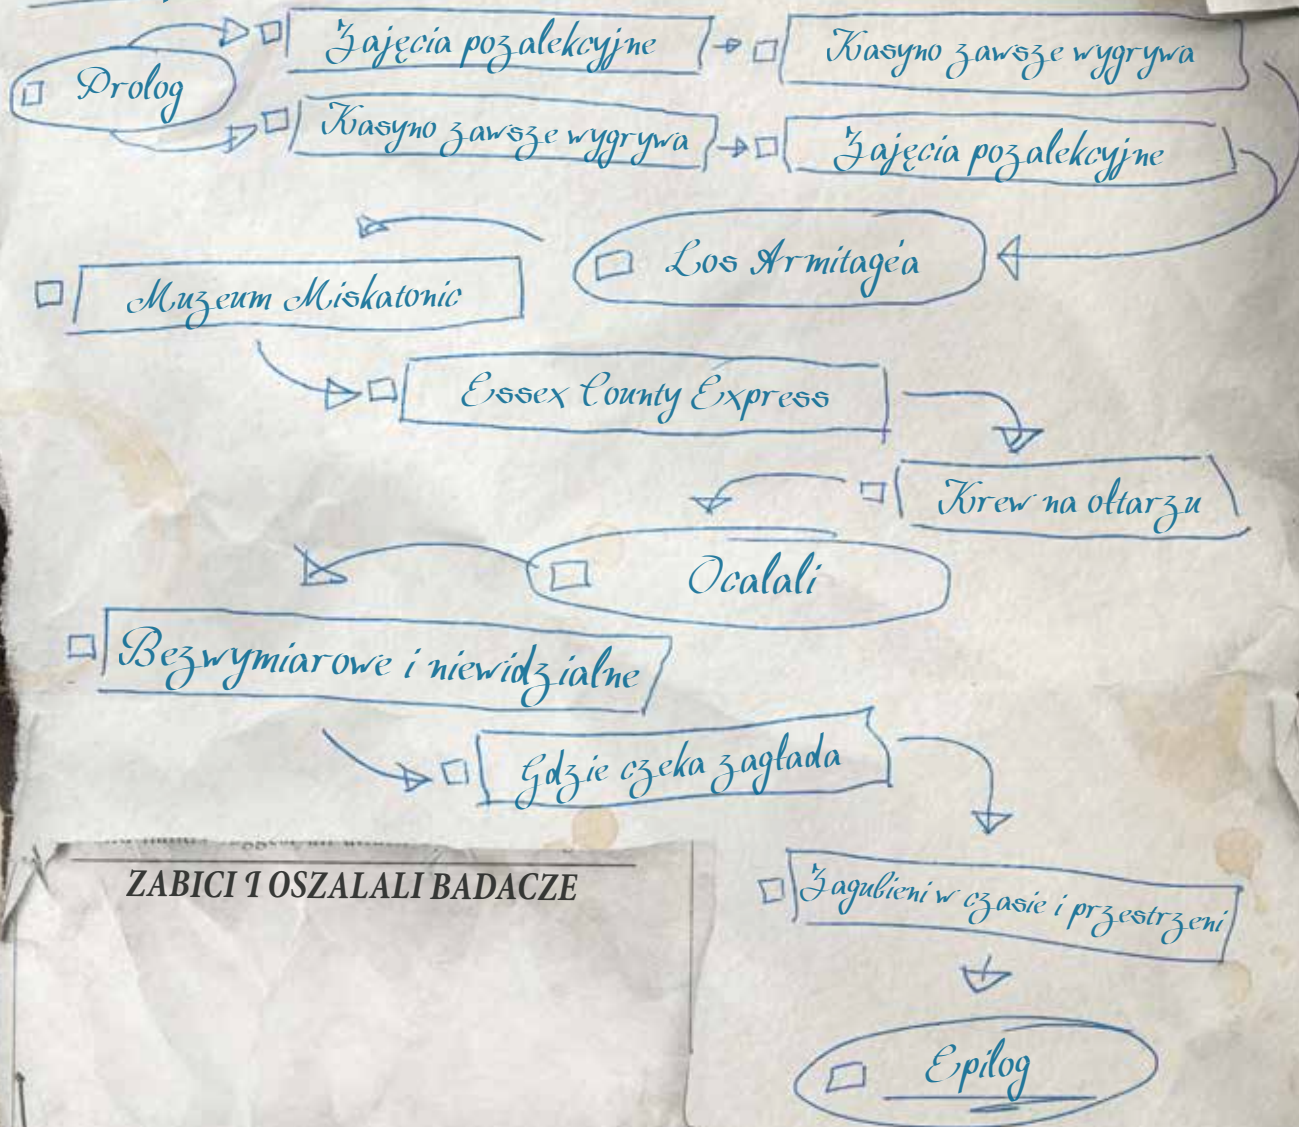 Zajęcia pozalekcyjne
Kasyno zawsze wygrywa
Prolog
Kasyno zawsze wygrywa
Zajęcia pozalekcyjne
Los Armitage'a
Muzeum Miskatonic
Essex County Express
Krew na ołtarzu
Ocalali
Bezwymiarowe i niewidzialne
Gdzie czeka zagłada
ZABICI I OSZALALI BADACZE
Zagubieni w czasie i przestrzeni
Epilog